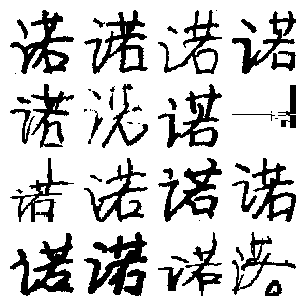 诺诺诺诺
诺诺
诺诺诺诺
诺诺诺诺